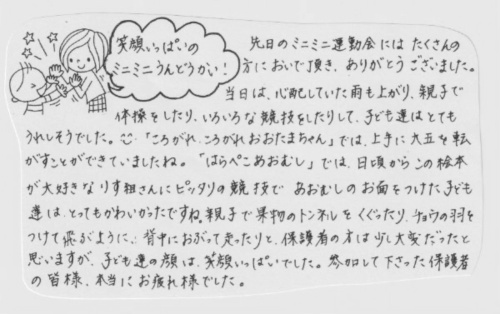 笑顔いっぱいの
ミニミニうんどうかい!
先日のミニミニ運動会にはたくさんの
方においで頂き、ありがとうございました。
当日は、心配していた雨も上がり、親子で
体操をしたり、いろいろな競技をしたりして、子ども達はとても
うれしそうでした。「ころがれ、ころがれおおたまちゃん」では、上手に大玉を転
がすことができていましたね。「はらぺこあおむし」では、日頃からこの絵本
が大好きなりす組さんにピッタリの競技で あおむしのお面をつけた子ども
達は、とってもかわいかったですね。親子で果物のトンネルをくぐったり、チョウの羽を
つけて飛ぶように、背中におぶって走ったりと、保護者の方は少し大変だったと
思いますが、子ども達の顔は、笑顔いっぱいでした。参加して下さった保護者
の皆様、本当にお疲れ様でした。